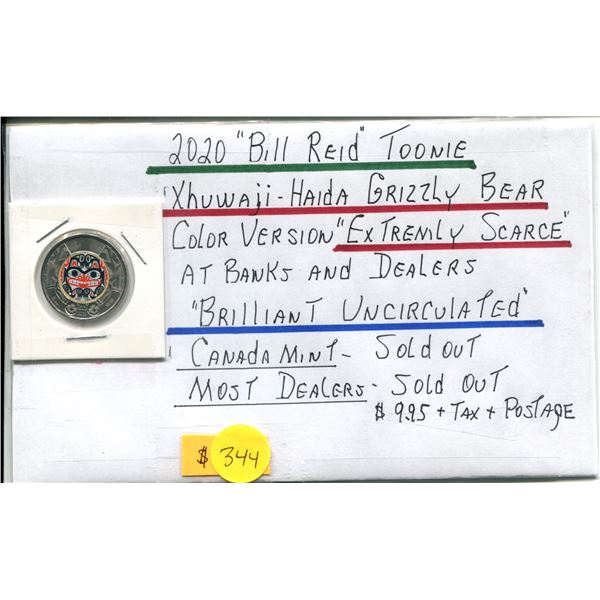 2020 "Bill Reid" Toonie
Xhuwaji-Haida Grizzly Bear
Color Version "Extremly Scarce"
at Banks and Dealers
"Brilliant Uncirculated"
Canada Mint - Sold out
Most Dealers - Sold out
$ 9.95 + Tax + Postage
$ 344